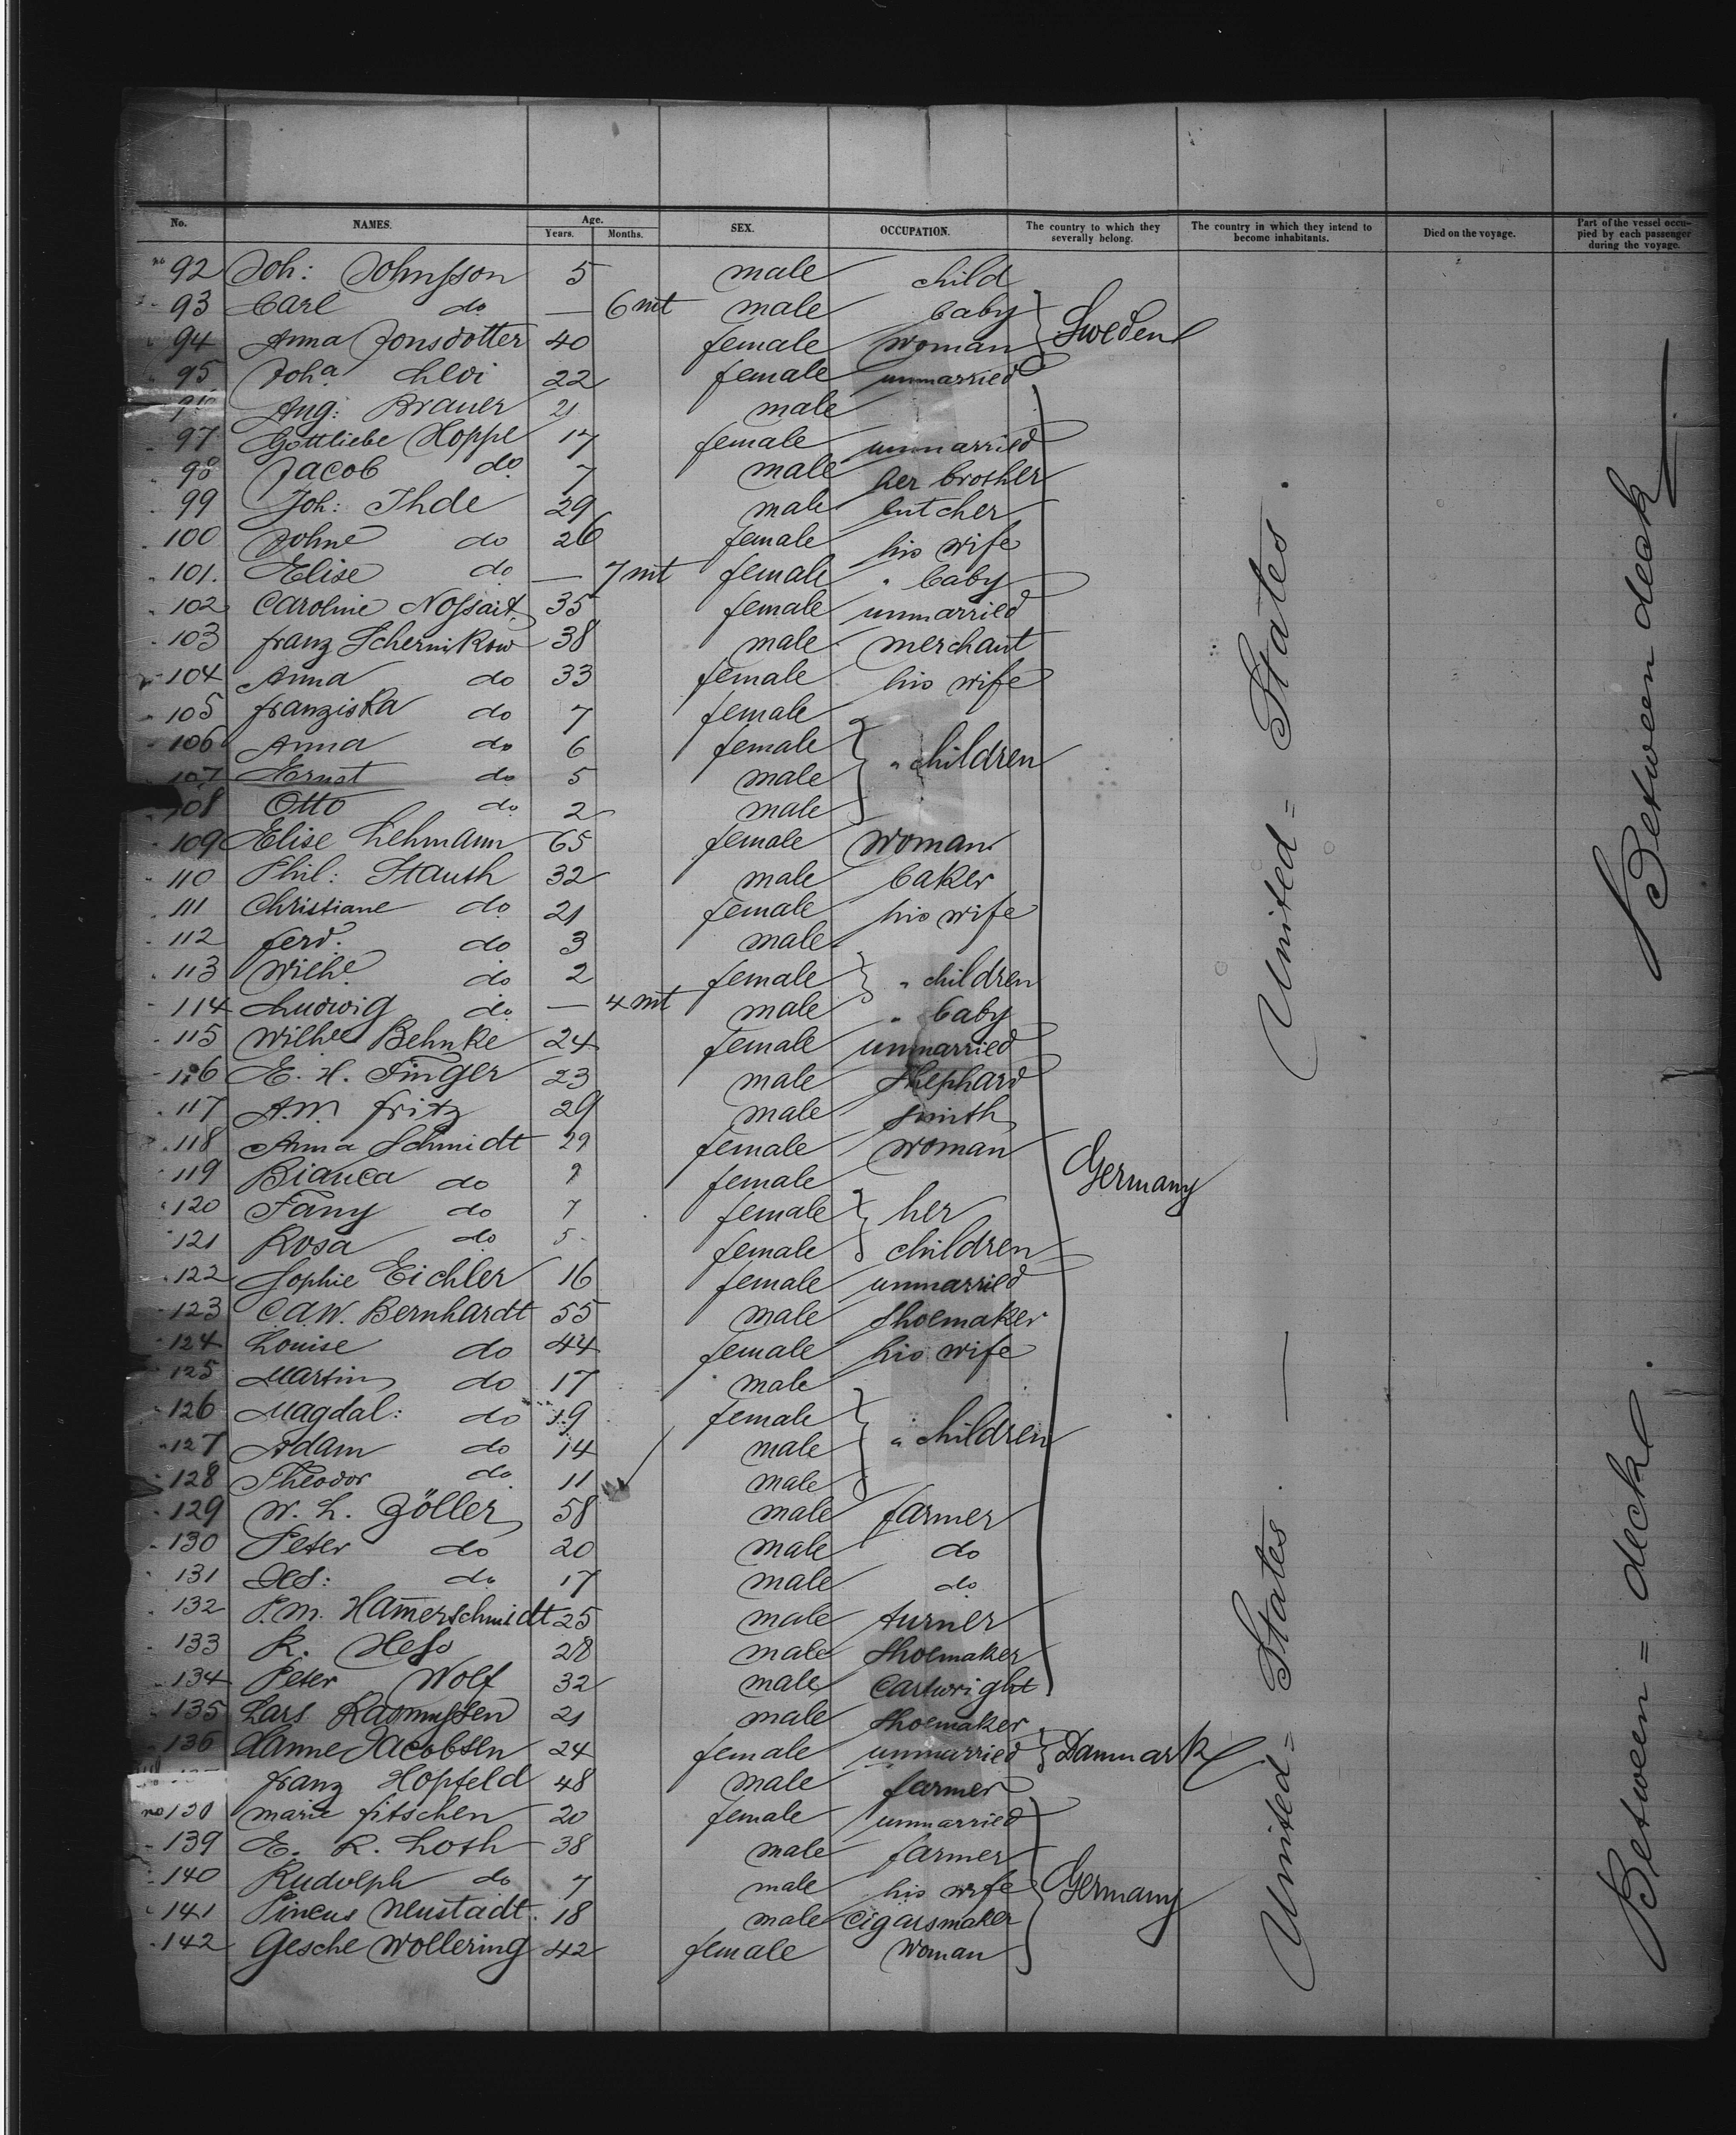 No. NAMES. Age. Years. Months. SEX. OCCUPATION. The country to which they severally belong. The country in which they intend to become inhabitants. Died on the voyage. Part of the vessel occupied by each passenger during the voyage.
no 92 Joh: Johnsson 5 male child
93 Carl do — 6 mt male baby
94 Anna Jonsdotter 40 female woman Sweden
95 Joha Lewi 22 female unmarried
96 Aug: Brauer 21 male
97 Gottliebe Hoppe 17 female unmarried
98 Jacob do 7 male her brother
99 Joh: Ihde 29 male butcher
100 Johne do 26 female his wife
101. Elise do — 7 mt female " baby
102 Caroline Nossait 35 female unmarried
103 franz Schernikow 38 male merchant
104 Anna do 33 female his wife
105 franziska do 7 female
106 Anna do 6 female " children
107 Ernst do 5 male
108 Otto do 2 male
109 Elise Lehmann 65 female woman
110 Phil: Stauth 32 male baker
111 Christiane do 21 female his wife
112 ferd. do 3 male
113 Wilhe do 2 female " children
114 Ludwig do — 4 mt male " baby
115 Wilhe Behnke 24 female unmarried
116 E. H. Finger 23 male Shephard
117 A.M. fritz 29 male smith
118 Anna Schmidt 29 female woman Germany
119 Bianca do female
120 Fany do 7 female her
121 Rosa do 5 female children
122 Sophie Eichler 16 female unmarried
123 C.A.W. Bernhardt 55 male shoemaker
124 Louise do 44 female his wife
125 Martin do 17 male
126 Magdal: do 19 female " children
127 Adam do 14 male
128 Theodor do 11 male
129 W. L. Zöller 58 male farmer
130 Peter do 20 male do
131 do 17 male do
132 P.M. Hamerschmidt 25 male turner
133 R. Hess 28 male Shoemaker
134 Peter Wolf 32 male Cartwright
135 Lars Rasmussen 21 male shoemaker
136 Hanne Jacobsen 24 female unmarried Danmark
franz Hopfeld 48 male farmer
no 138 marie fitschen 20 female unmarried
139 E. R. Loth 38 male farmer
140 Rudolph do 7 male his wife Germany
141 Pincus Neustadt 18 male cigarsmaker
142 Gesche Wollering 42 female Woman
United = States.
United = States. —
Between deak
Between = deck.